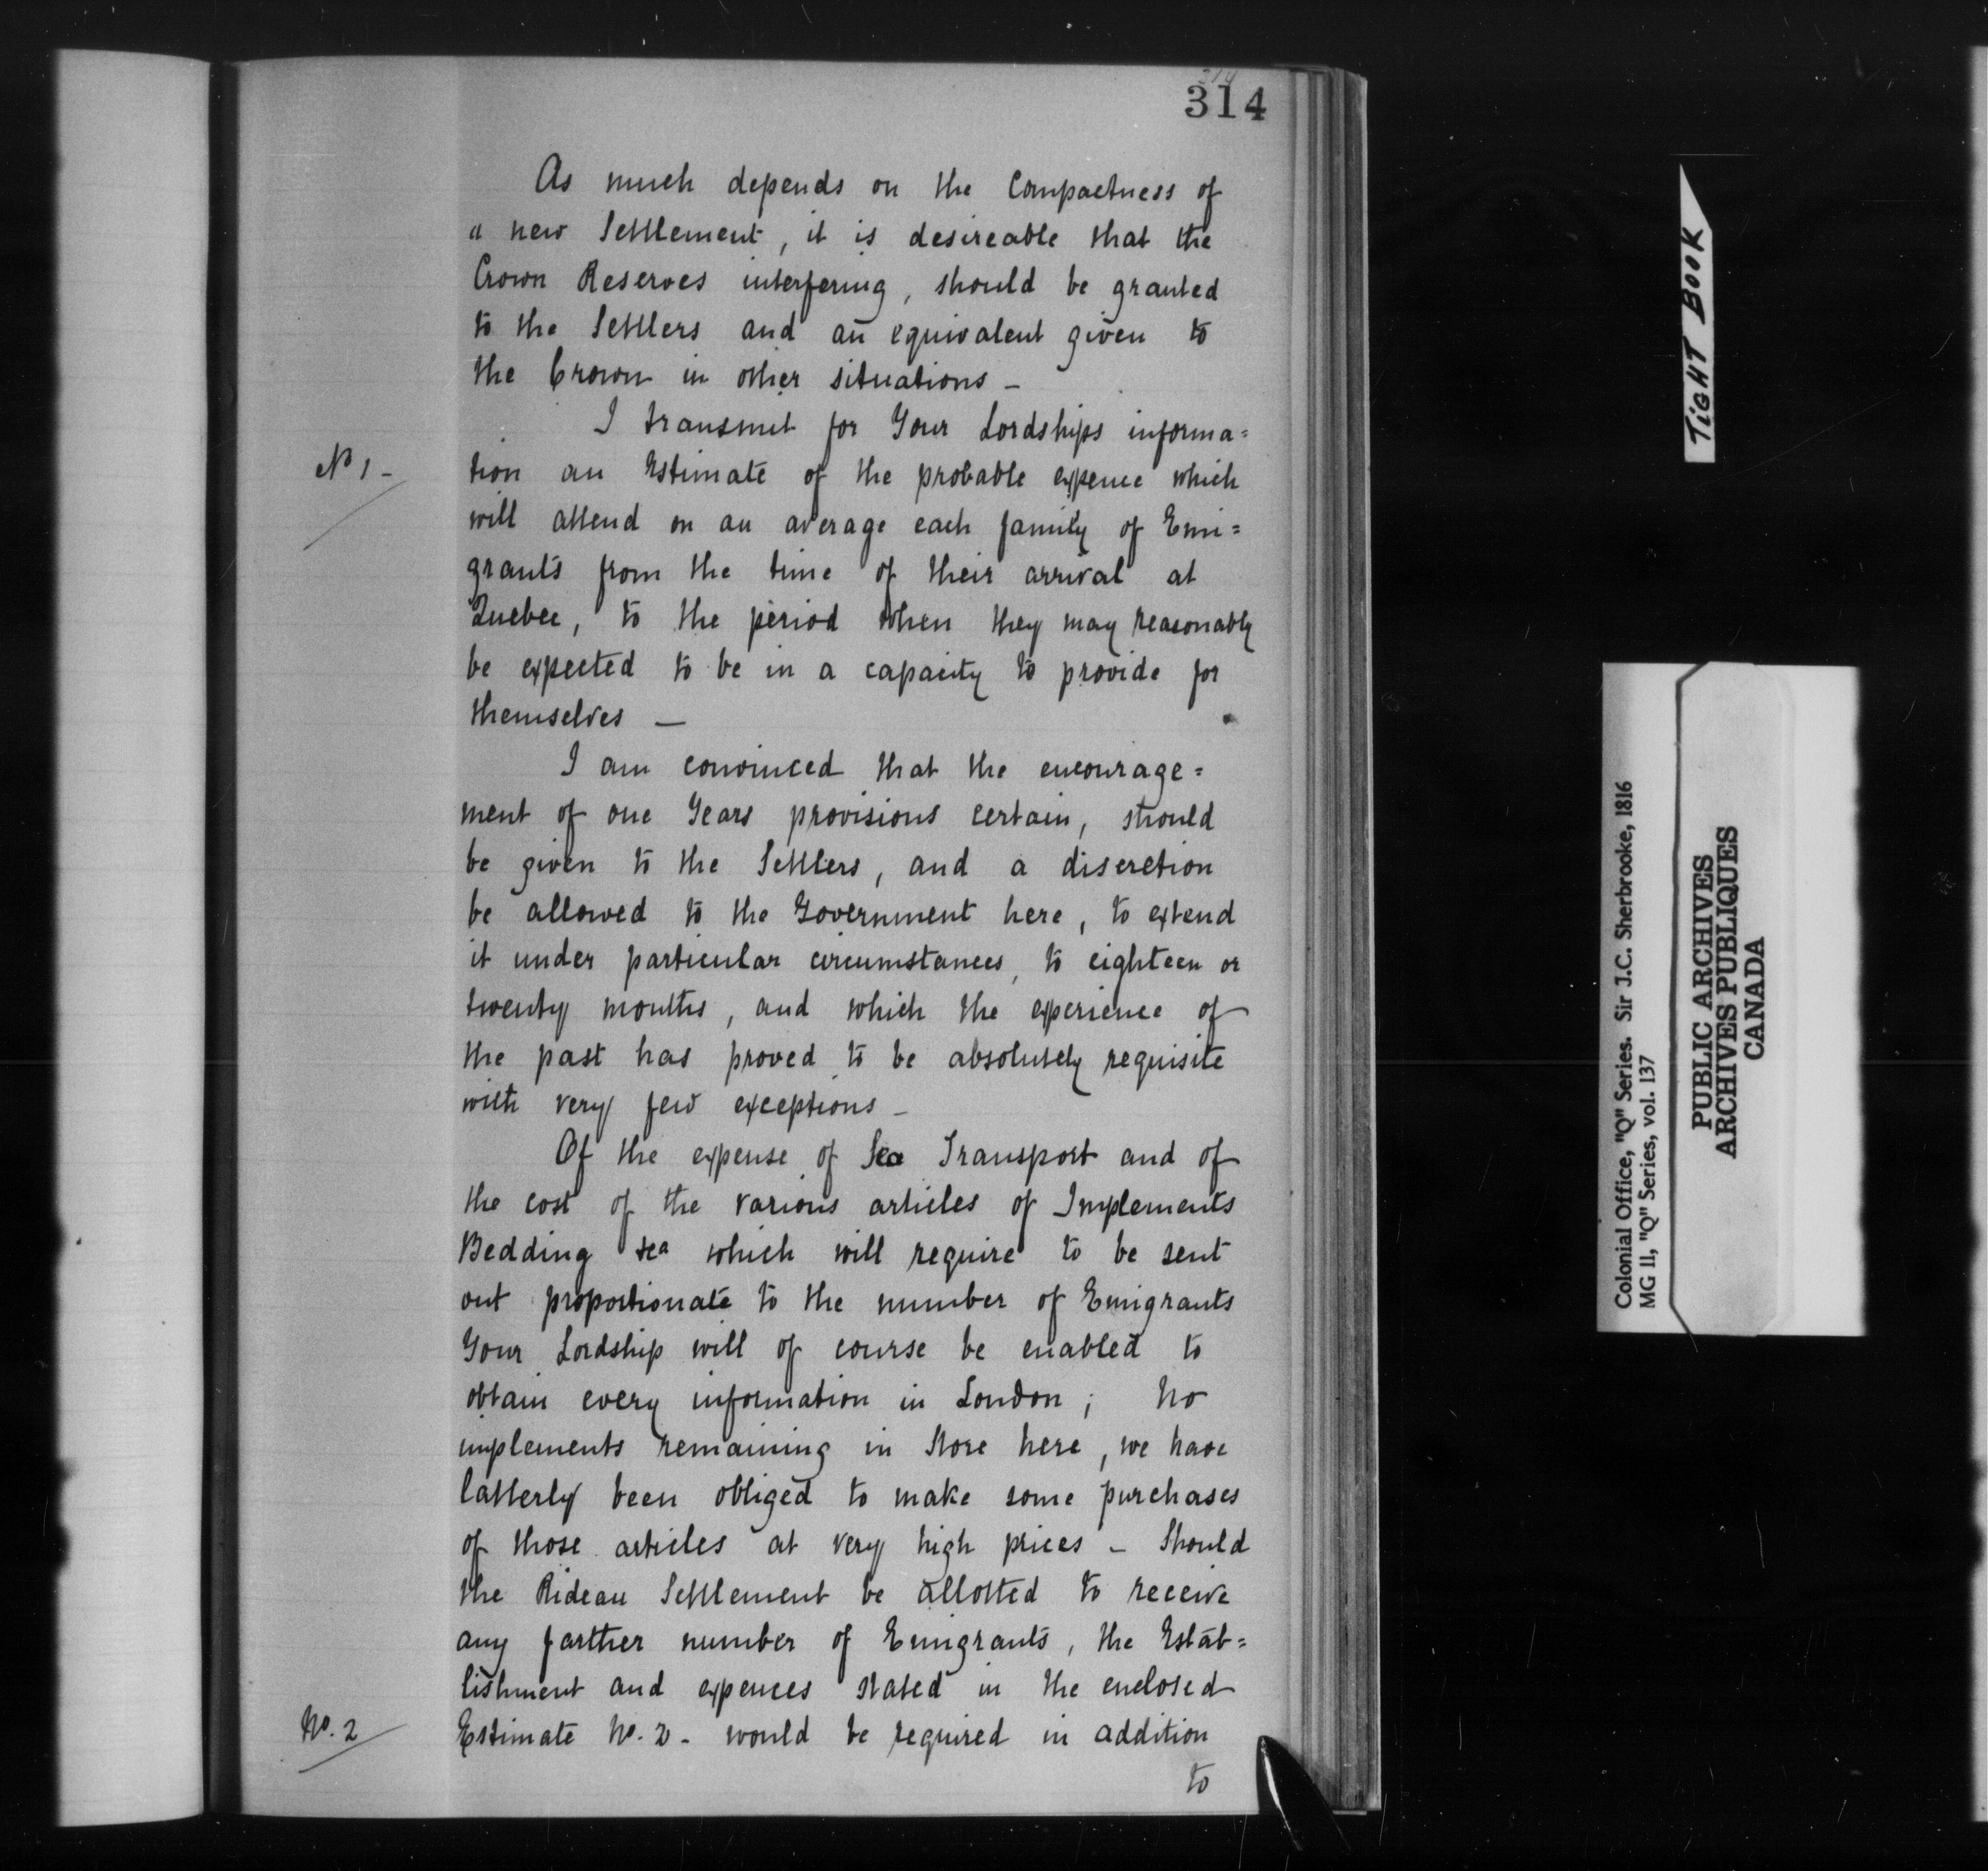 314
314
As much depends on the Compactness of
a new Settlement, it is desireable that the
Crown Reserves interfering, should be granted
to the Settlers and an equivalent given to
the Crown in other situations –
I transmit for Your Lordships informa=
No 1 –
tion an Estimate of the probable expence which
will attend on an average each family of Emi=
grants from the time of their arrival at
Quebec, to the period when they may reasonably
be expected to be in a capacity to provide for
themselves —
I am convinced that the encourage=
ment of one Years provisions certain, should
be given to the Settlers, and a discretion
be allowed to the Government here, to extend
it under particular circumstances, to eighteen or
twenty months, and which the experience of
the past has proved to be absolutely requisite
with very few exceptions –
Of the expense of Sea Transport and of
the cost of the various articles of Implements
Bedding &ca which will require to be sent
out proportionate to the number of Emigrants
Your Lordship will of course be enabled to
obtain every information in London; No
implements remaining in Store here, we have
latterly been obliged to make some purchases
of those articles at very high prices – Should
the Rideau Settlement be allotted to receive
any farther number of Emigrants, the Estab=
lishment and expences stated in the enclosed
No. 2
Estimate No. 2 – would be required in addition
to
TIGHT BOOK
Colonial Office, "Q" Series. Sir J.C. Sherbrooke, 1816
MG 11, "Q" Series, vol. 137
PUBLIC ARCHIVES
ARCHIVES PUBLIQUES
CANADA